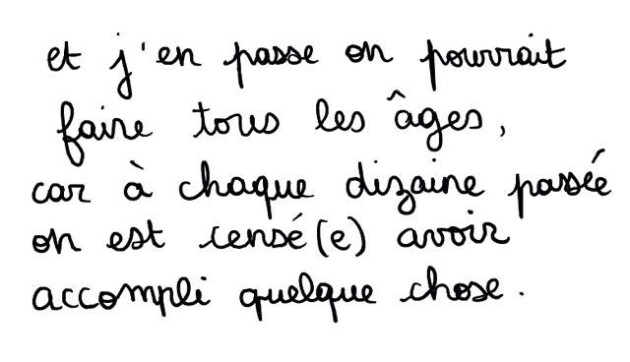 et j'en passe on pourrait
faire tous les âges,
car à chaque dizaine passée
on est censé(e) avoir
accompli quelque chose.